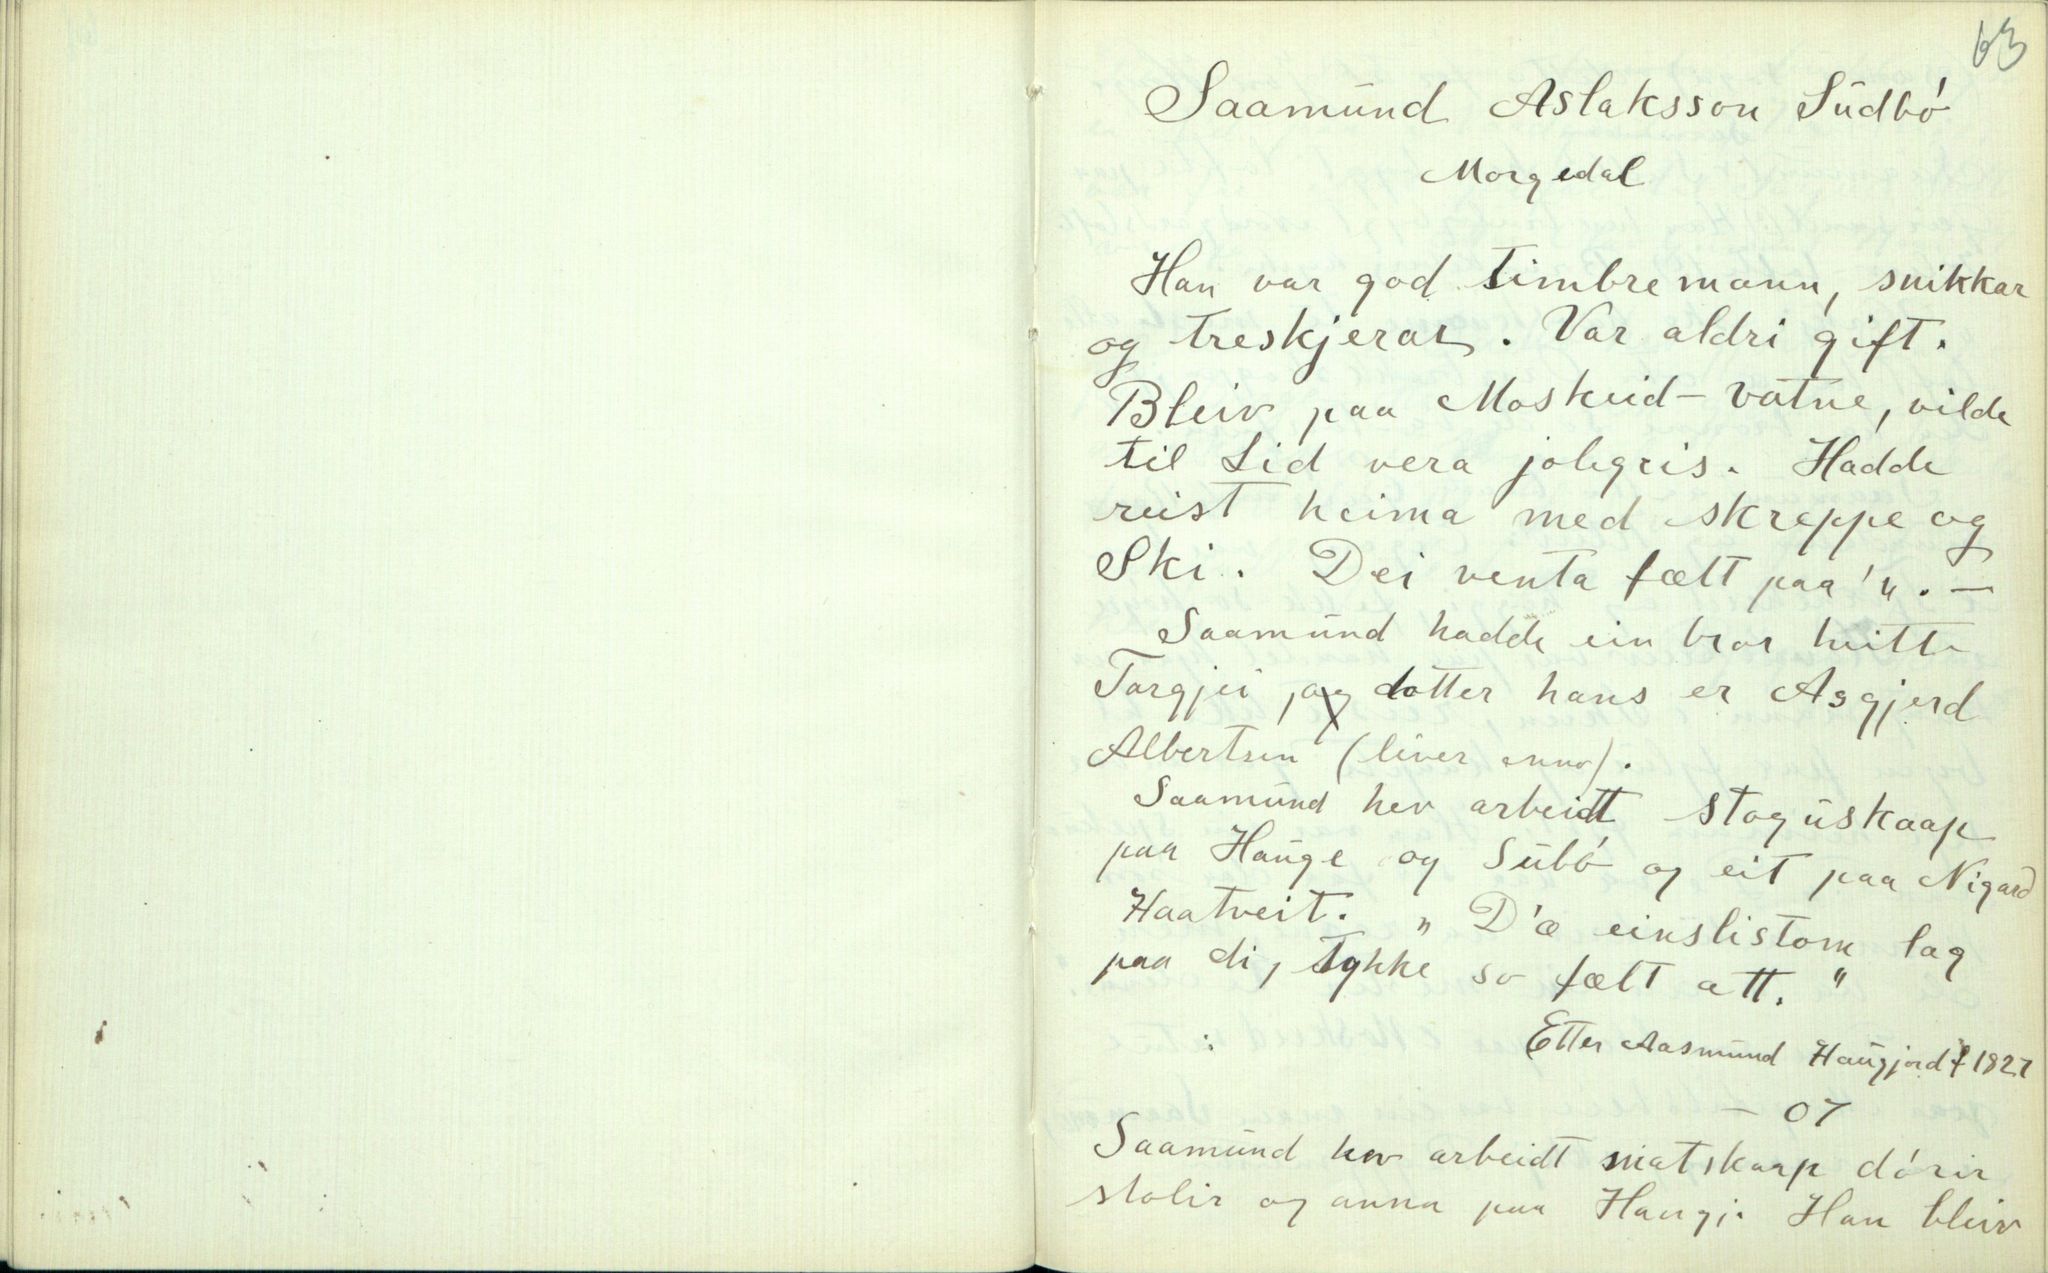 63
Saamund Aslaksson Sudbó
Morgedal
Han var god timbremann, snikkar
og treskjerar. Var aldri gift.
Bleiv paa Moskeid-vatne, vilde
til Lid vera jolegris. Hadde
reist heima med skreppe og
Ski. Dei venta fælt paa 'n. —
Saamund hadde ein bror heitte
Targjei, og dotter hans er Asgjerd
Albertsen (liver enno).
Saamund hev arbeidt stoguskaap
paa Hauge og Subó og eit paa Nigard
Haatveit. „ D'æ einslistom lag
paa di, tykke so fælt att. "
Etter Aasmund Haugjord f 1827
— 07
Saamund hev arbeidt matskaap dórir
stolir og anna paa Haugj. Han bleiv